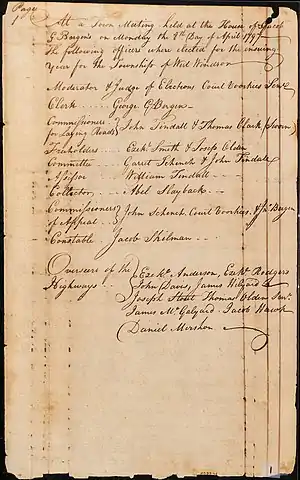 Page
1
At a Town Meeting held at the House of Jacob
G Bergen's on Monday the 8th Day of April 1797
The following officers where elected for the ensuing
Year for the Township of West Windsor
Moderator & Judge of Elections Court Voorhies Senr
Clerk .... George G Bergen
Commissioners for laying Roads } John Tindall & Thomas Clark Sworn
Freeholders ... Ezekl Smith & Joseph Olden
Committee ... Garret Schenck & John Tindall
Assessor William Tindall
Collector .... Abel Slayback
Commissioners of Appeal } John Schenck Court Voorhies & Jno Bergen
Constable Jacob Skilman
Overseers of the Highways { Ezekl Anderson, Ezekl Rodgers
John Davis, James Hilyard &
Joseph Stotel Thomas Olden Junr
James Mc Galyard Jacob Hawk
Daniel Mershon
1